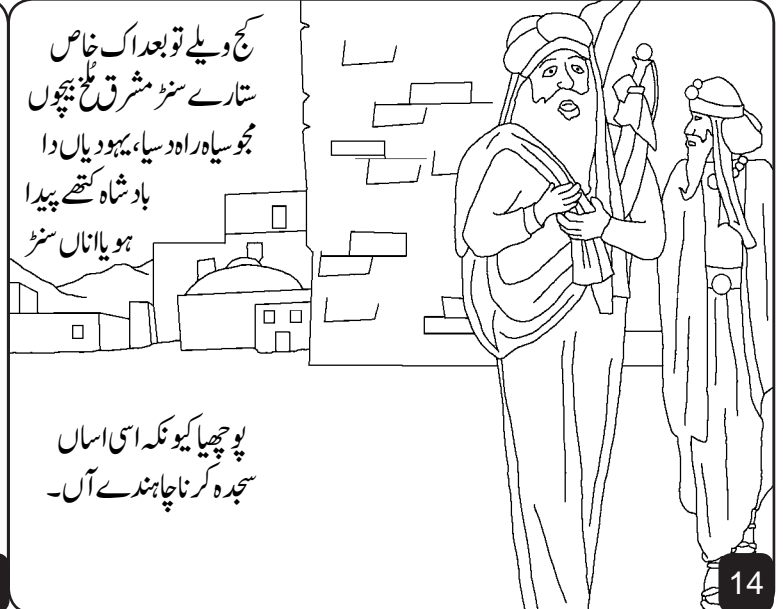 کجھ ویلے تو بعد اک خاص
ستارے سنڑ مشرق مُلخ بیچوں
مجوسیاہ راہ دسیا، یہودیاں دا
بادشاہ کتھے پیدا
ہویا اناں سنڑ
پوچھیا کیونکہ اسی اساں
سجدہ کرنا چاہندے آں۔
14